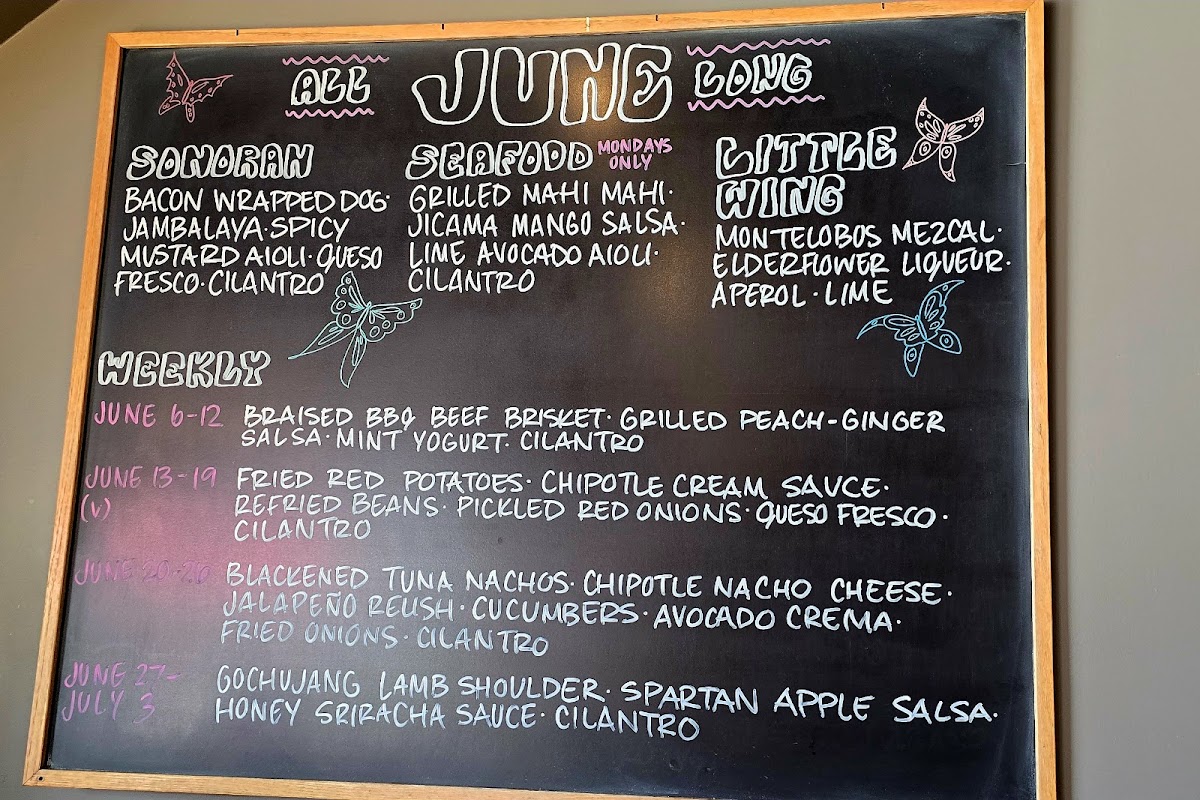 ALL JUNE LONG
SONORAN
BACON WRAPPED DOG·
JAMBALAYA·SPICY
MUSTARD AIOLI·QUESO
FRESCO·CILANTRO
SEAFOOD MONDAYS ONLY
GRILLED MAHI MAHI·
JICAMA MANGO SALSA·
LIME AVOCADO AIOLI·
CILANTRO
LITTLE
WING
MONTELOBOS MEZCAL·
ELDERFLOWER LIQUEUR·
APEROL·LIME
WEEKLY
JUNE 6-12 BRAISED BBQ BEEF BRISKET·GRILLED PEACH-GINGER
SALSA·MINT YOGURT·CILANTRO
JUNE 13-19 FRIED RED POTATOES·CHIPOTLE CREAM SAUCE·
(V) REFRIED BEANS·PICKLED RED ONIONS·QUESO FRESCO·
CILANTRO
JUNE 20-26 BLACKENED TUNA NACHOS·CHIPOTLE NACHO CHEESE·
JALAPEÑO RELISH·CUCUMBERS·AVOCADO CREMA·
FRIED ONIONS·CILANTRO
JUNE 27- GOCHUJANG LAMB SHOULDER·SPARTAN APPLE SALSA·
JULY 3 HONEY SRIRACHA SAUCE·CILANTRO